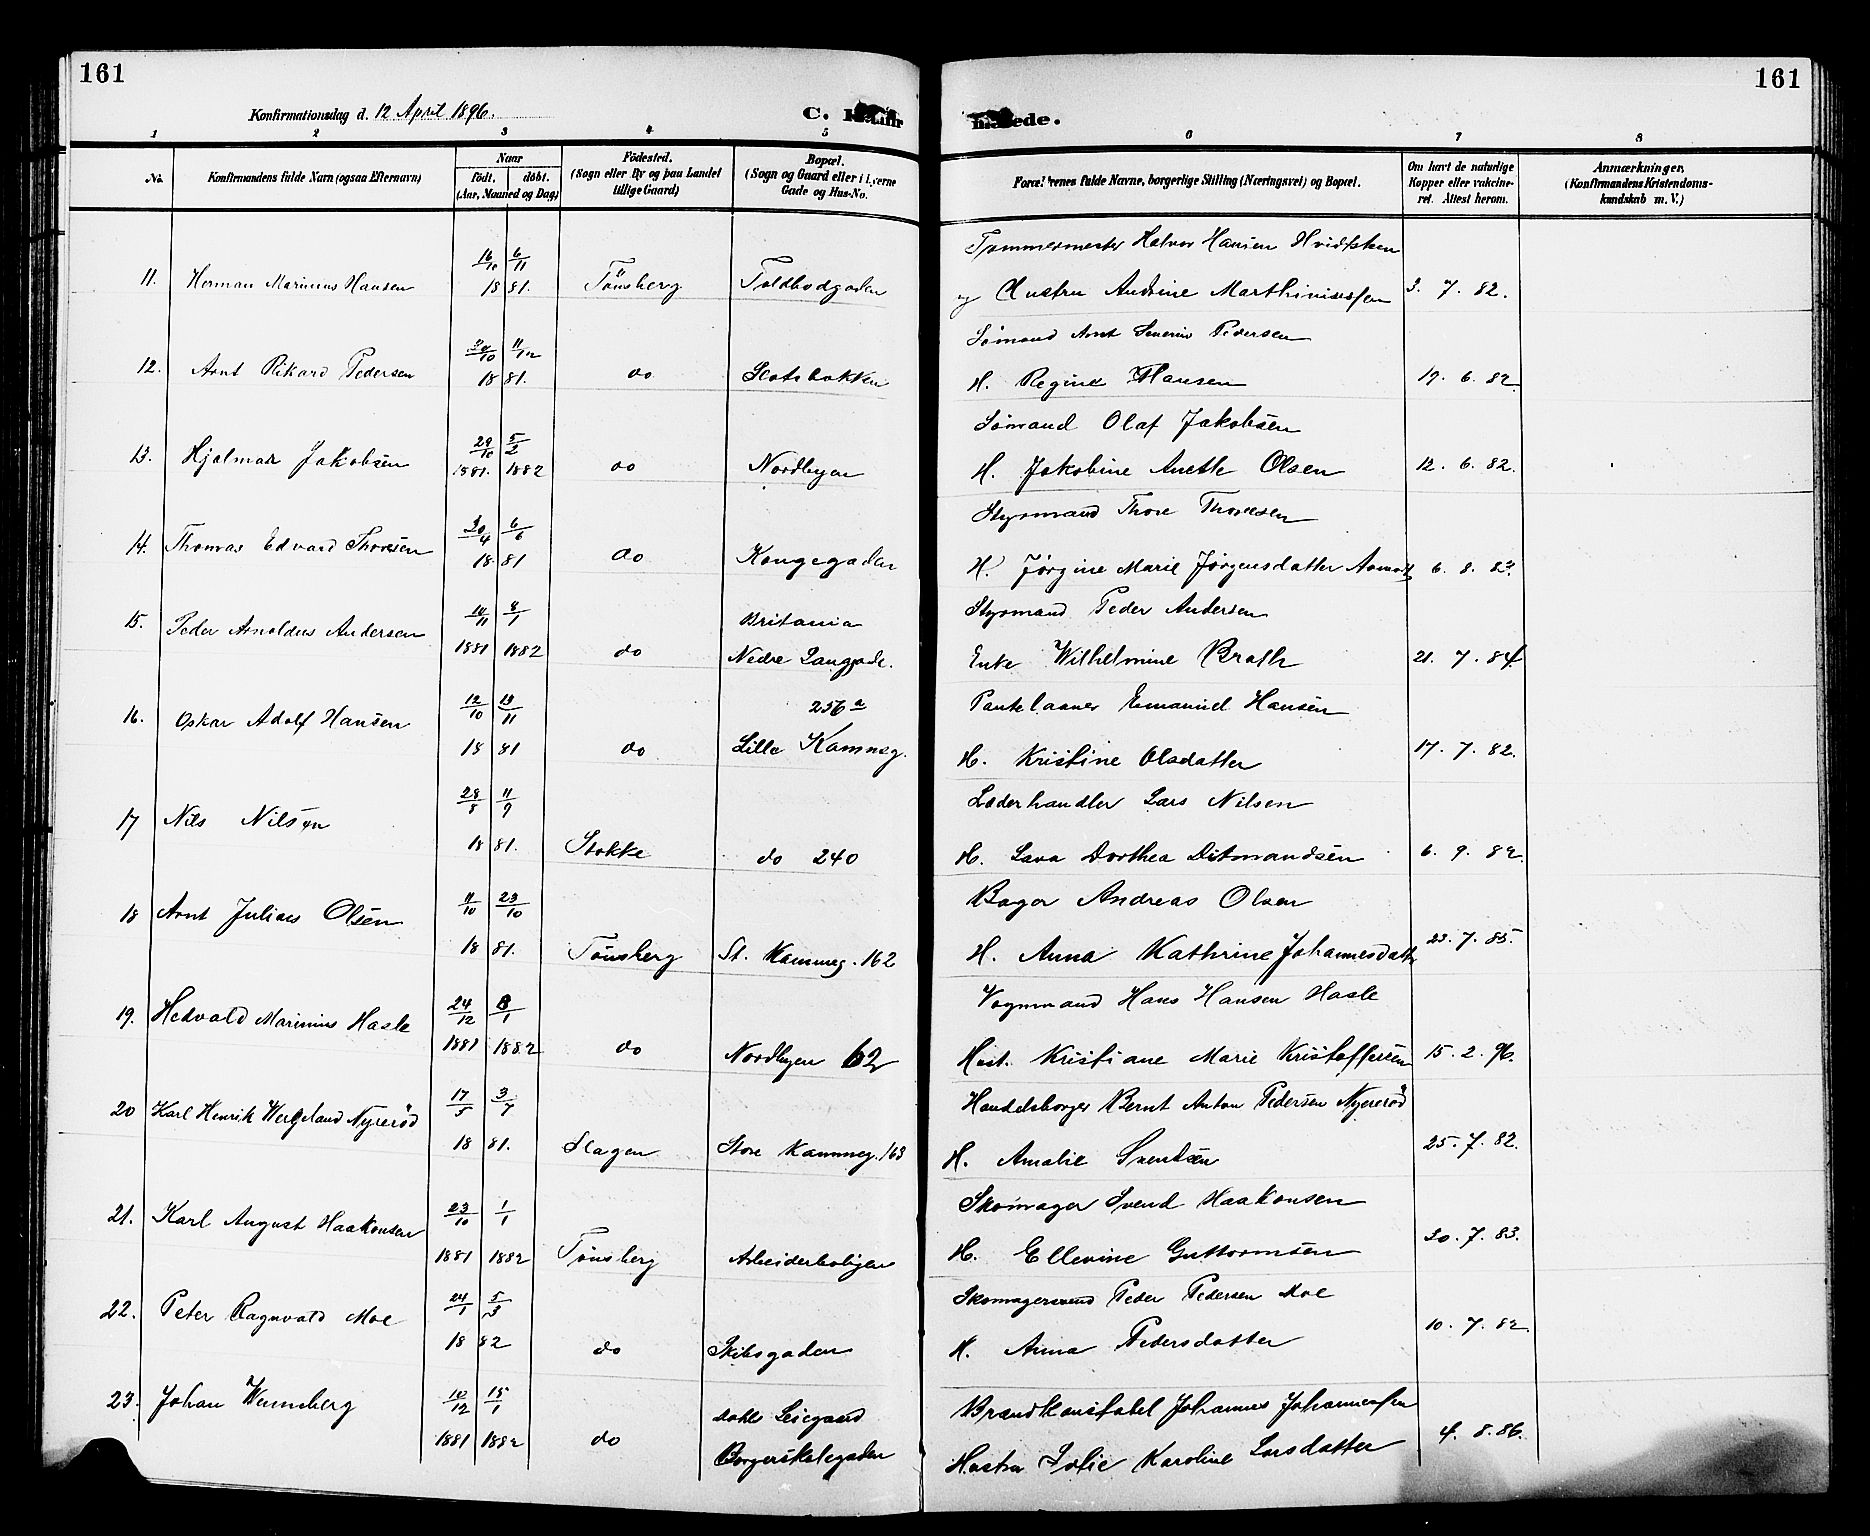 161
161
Konfirmationsdag d. 12 April 1896.
C. Konfir
merede.
1 2 3 4 5 6 7 8
No. Konfirmandens fulde Navn (ogsaa Efternavn) Naar födt. döbt. (Aar, Maaned og Dag) Födested. (Sogn eller By og paa Landet tillige Gaard) Bopæl. (Sogn og Gaard eller i Byerne Gade og Hus-No. Forældrenes fulde Navne, borgerlige Stilling (Næringsvei) og Bopæl. Om havt de naturlige Kopper eller vakcineret. Attest herom. Anmærkninger, (Konfirmandens Kristendomskundskab m. V.)
16/10 6/11 Tømmermester Halvor Hansen
11. Herman Marinius Hansen 18 81. Tönsberg Toldbodgaden og Hustru Andrine 3. 7. 82.
11/12 Sømand Arnt Severin Pedersen
12. Arnt Rikard Pedersen 18 81. do Slotsbakken H. Regine Hansen 19. 6. 82.
29/10 5/2 Sömand Olaf Jakobsen
13. Hjalmar Jakobsen 1881. 1882 do Nordbyen H. Jakobine Anette Olsen 12. 6. 82.
6/6 Styrmand Thore Thoresen
14. Thomas Edvard Thoresen 18 81 do Kongegaden H. Jørgine Marie Jørgensdatter 6. 8.
8/1 Britania Styrmand Peder Andersen
15. Peder Arnoldus Andersen 1881 1882 do Nedre Langgade. Enke Wilhelmine 21. 7. 84.
12/10 13/11 256 a Emanuel Hansen
16. Oskar Adolf Hansen 18 81 do Lille Kamneg. H. Kristine Olsdatter 17. 7. 82.
28/8 11/9 Læderhandler Lars Nilsen
17 Nils Nilsen 18 81. Stokke do 240 H. Lava Dorthea Ditmandsen 6. 9. 82.
11/10 23/10 Bager Andreas Olsen
18 Arnt Julius Olsen 18 81. Tönsberg St. Kamneg. 162 H. Anna Kathrine Johannesdatt 23. 7. 85.
24/12 8/1 Vognmand Hans Hansen Hasle
19. Hedvald Marinius Hasle 1881 1882 do Nordbyen 62 Hust. Kristiane Marie Kristoffersen 15. 2. 96.
17/5 3/7 Handelsborger Bernt Anton Pedersen Nyrerød
20 Karl Henrik Wergeland Nyrerød 18 81. Slagen Store Kamneg. 163 H. Amalie Svendsen 25. 7. 82.
23/10 1/1 Skomager Svend Haakonsen
21. Karl August Haakonsen 1881 1882 Tönsberg Arbeiderboligen H. Ellevine Guttormsen 20. 7. 83.
24/1 5/3 Skomagersvend Peder Pedersen Moe
22. Peter Ragnvald Moe 18 82 do Skibsgaden H. Anna Pedersdatter 10. 7. 82.
15/1 Brandkonstabel Johannes Johannessen
23. Johan Wennberg 1881 1882 do Borgerskolegaden Hustru Karoline Larsdatter 4. 8. 86.